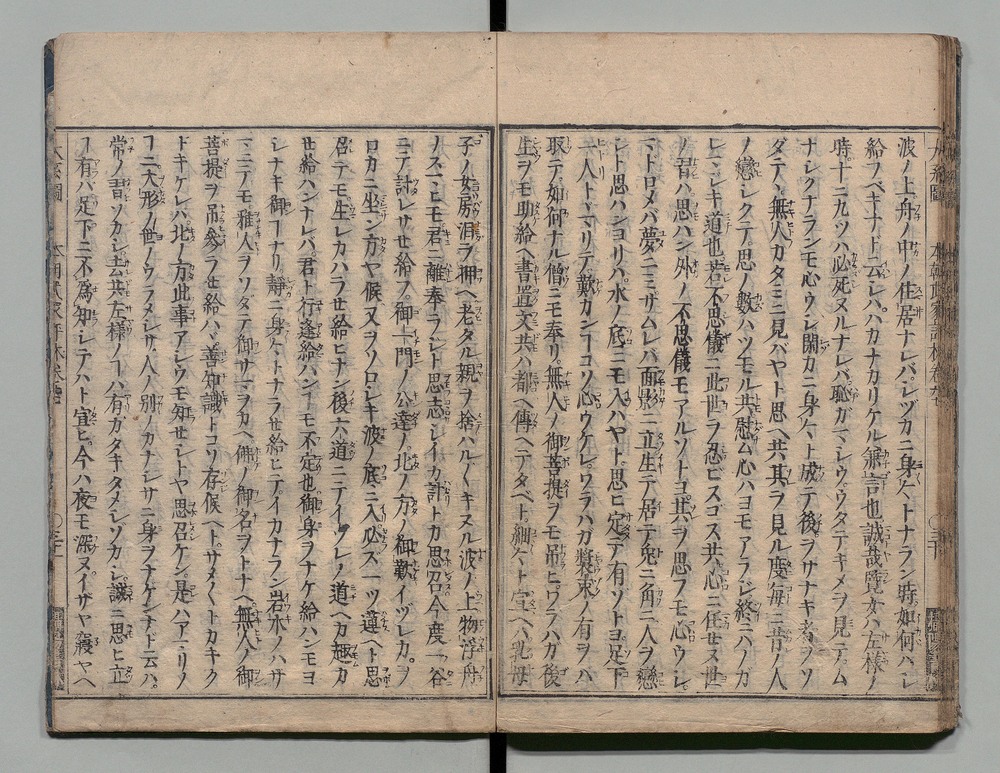 波ノ上舟ノ中ノ住居ナレバシヅカニ身々トナラン時如何ハシ
給フベキナド云レハハカナカリケル無言也誠哉覽女ハ左樣ノ
時十ニ九ツハ必死ヌルナレバ恥ガマシウウタテキメヲ見テム
ナシクナランモ心ウシ閑カニ身々ト成テ後ヲサナキ者ヲソ
ダテヽ無人カタミニ見バヤト思ヘ共其ヲ見ル度每ニ昔ノ人
ノ戀シクテ思ノ數ハツモル共慰ム心ハヨモアラジ終ニハノガ
レマシキ道也若不思儀ニ此世ヲ忍ビスゴス共心ニ任セヌ世
ノ習ハ思ハン外ノ不思儀モアルソトヨ其ヲ思フモ心ウシ
マドロメバ夢ニミザムレバ面影ニ立生テ居テ兎ニ角ニ人ヲ戀
シト思ハンヨリハ水ノ底ニモ入バヤト思ヒ定テ有ソトヨ足下
一人トヾマリテ歎カンコソ心ウケレワラハガ裝束ノ有ヲバ
取テ如何ナル僧ニモ奉リ無人ノ御菩提ヲモ吊ヒワラハガ後
生ヲモ助給ヘ書置文共ハ都ヘ傳ヘテタベト細々ト宣ヘハ乳母
子ノ女房淚ヲ押ヘ老タル親ヲ捨ハル〱キヌル波ノ上物浮舟
ノスマヒモ君ニ離奉ラシト思志シイカ計トカ思召今度一谷
ニテ討レサセ給フ御一門ノ公達ノ北ノ方ノ御歎イヅレカヲ
ロカニ坐ン方ヤ候又ヲソロシキ波ノ底ニ入必ス一ツ蓮ヘト思
召テモ生レカハラセ給ヒナン後六道ニテイヅレノ道ヘカ趣カ
セ給ハンナレバ君ト行逢給ハンヿモ不定也御身ヲナケ給ハンモヨ
シナキ御ヿナリ靜ニ身々トナラセ給ヒテイカナラン岩木ノハサ
マニテモ雅人ヲソダテ御サマヲカヘ佛ノ御名ヲトナヘ無人ノ御
菩提ヲ吊參ラセ給ハヽ善知識トコソ存候ヘトサメ〱トカキク
ドキケレバ北ノ方此事アシウモ知セシトヤ思召ケン是ハアマリノ
ヿニ大形ノ世ノウラメシサ人ノ別ノカナシサニ身ヲナゲンナド云ハ
常ノ習ソカシ去共左樣ノヿハ有ガタキタメシソカシ誠ニ思ヒ立
ヿ有バ足下ニ不爲知シテハト宣ヒ今ハ夜モ深ヌイサヤ寢ヤヘ